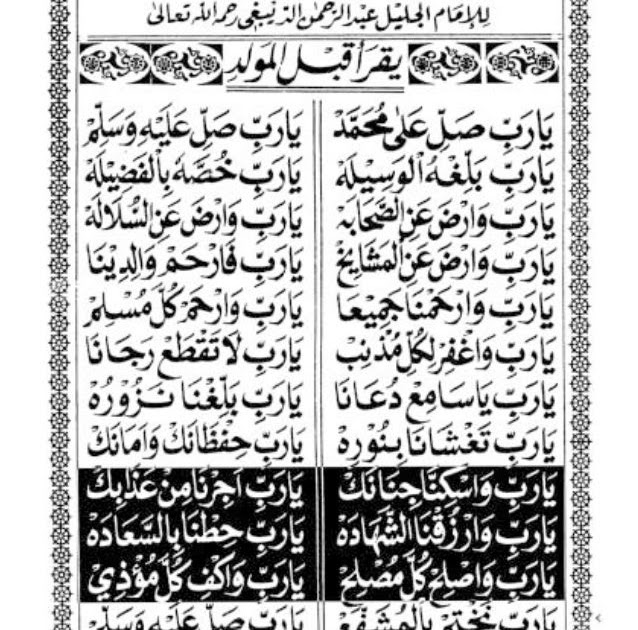 للإمام الجليل عبد الرحمن الديبغي رحمه الله تعالى
يقرأ قبل المولد
يَارَبِّ صَلِّ عَلَى مُحَمَّدْ يَارَبِّ صَلِّ عَلَيْهِ وَسَلِّمْ
يَارَبِّ بَلِّغْهُ الْوَسِيلَهْ يَارَبِّ خُصَّهُ بِالْفَضِيلَهْ
يَارَبِّ وَارْضَ عَنِ الصَّحَابَهْ يَارَبِّ وَارْضَ عَنِ السُّلَالَهْ
يَارَبِّ وَارْضَ عَنِ الْمَشَايِخْ يَارَبِّ فَارْحَمْ وَالِدِينَا
يَارَبِّ وَارْحَمْنَا جَمِيعًا يَارَبِّ وَارْحَمْ كُلَّ مُسْلِمْ
يَارَبِّ وَاغْفِرْ لِكُلِّ مُذْنِبْ يَارَبِّ لَا تَقْطَعْ رَجَانَا
يَارَبِّ يَاسَامِعْ دُعَانَا يَارَبِّ بَلِّغْنَا نَزُورُهْ
يَارَبِّ تَغْشَانَا بِنُورِهْ يَارَبِّ حِفْظَانَكْ وَامَانَكْ
يَارَبِّ وَاسْكِنَّا جِنَانَكْ يَارَبِّ اَجِرْنَا مِنْ عَذَابِكْ
يَارَبِّ وَارْزُقْنَا الشَّهَادَهْ يَارَبِّ حِطْنَا بِالسَّعَادَهْ
يَارَبِّ وَاصْلِحْ كُلَّ مُصْلِحْ يَارَبِّ وَاكْفِ كُلَّ مُؤْذِيْ
يَارَبِّ نَخْتِمْ بِالْمُشَفَّعْ يَارَبِّ صَلِّ عَلَيْهِ وَسَلِّمْ